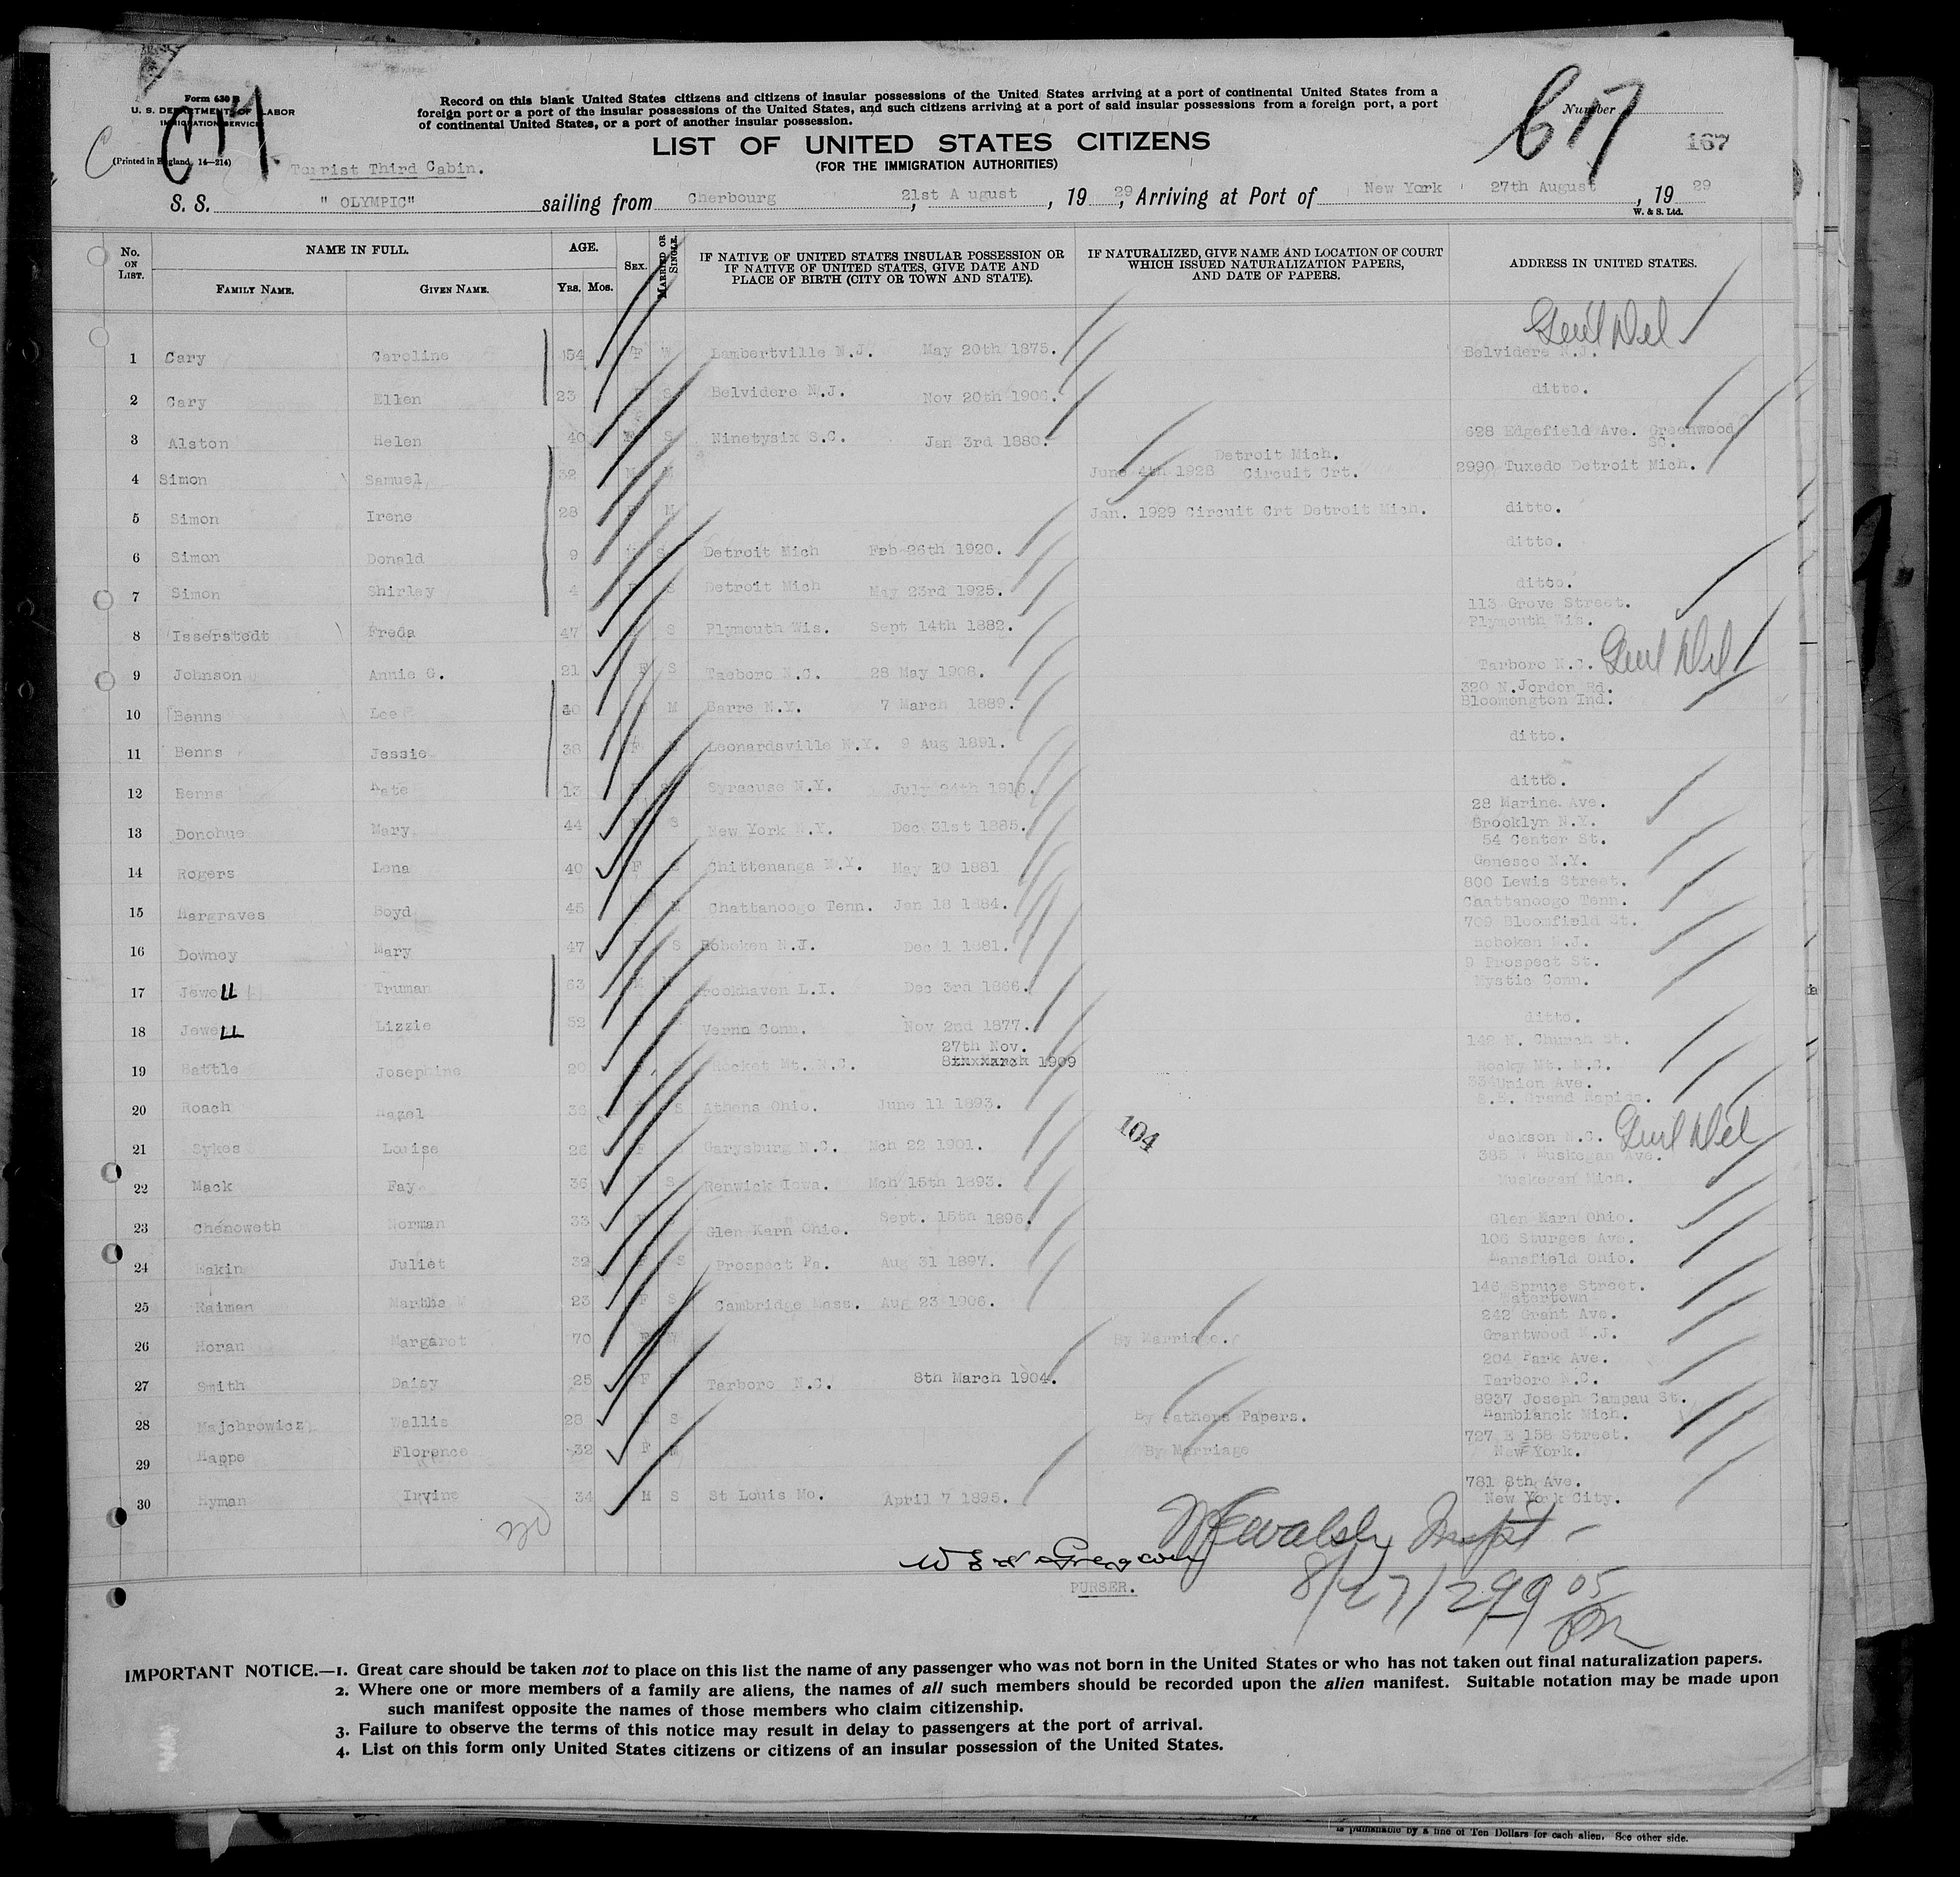 Form 630 B
U. S. DEPARTMENT OF LABOR
IMMIGRATION SERVICE
(Printed in England, 14—214)
Record on this blank United States citizens and citizens of insular possessions of the United States arriving at a port of continental United States from a
foreign port or a port of the insular possessions of the United States, and such citizens arriving at a port of said insular possessions from a foreign port, a port
of continental United States, or a port of another insular possession.
Number
617
167
LIST OF UNITED STATES CITIZENS
(FOR THE IMMIGRATION AUTHORITIES)
Tourist Third Cabin.
S. S. " OLYMPIC" sailing from Cherbourg , 21st A ugust , 19 29, Arriving at Port of New York 27th August , 19 29
W. & S. Ltd.
No. ON LIST. NAME IN FULL. FAMILY NAME. GIVEN NAME. AGE. YRS. MOS. SEX. MARRIED OR SINGLE. IF NATIVE OF UNITED STATES INSULAR POSSESSION OR IF NATIVE OF UNITED STATES, GIVE DATE AND PLACE OF BIRTH (CITY OR TOWN AND STATE). IF NATURALIZED, GIVE NAME AND LOCATION OF COURT WHICH ISSUED NATURALIZATION PAPERS, AND DATE OF PAPERS. ADDRESS IN UNITED STATES.
1 Cary Caroline 54 F W Lambertville N.J. May 20th 1875. Belvidere N.J. Genl Del
2 Cary Ellen 23 S Belvidere N.J. Nov 20th 1906. ditto.
3 Alston Helen 40 F S Ninetysix S.C. Jan 3rd 1880. 628 Edgefield Ave. Greenwood SC.
4 Simon Samuel 32 M M June 4th 1928 Detroit Mich. Circuit Crt. 2990 Tuxedo Detroit Mich.
5 Simon Irene 28 M Jan. 1929 Circuit Crt Detroit Mich. ditto.
6 Simon Donald 9 S Detroit Mich Feb 26th 1920. ditto.
7 Simon Shirley 4 S Detroit Mich May 23rd 1925. ditto.
8 Isserstedt Freda 47 S Plymouth Wis. Sept 14th 1882. 113 Grove Street. Plymouth Wis.
9 Johnson Annie G. 21 F S Taeboro N.C. 28 May 1908. Tarboro N.C. Genl Del
10 Benns Lee 40 M Barre N.Y. 7 March 1889. 320 N.Jordon Rd. Bloomongton Ind.
11 Benns Jessie 38 F Leonardsville N.Y. 9 Aug 1891. ditto.
12 Benns Kate 13 Syracuse N.Y. July 24th 1916. ditto.
13 Donohue Mary 44 S New York N.Y. Dec 31st 1885. 28 Marine Ave. Brooklyn N.Y.
14 Rogers Lena 40 F S Chittenanga N.Y. May 20 1881 54 Center St. Genesco N.Y.
15 Hargraves Boyd 45 Chattanoogo Tenn. Jan 18 1884. 800 Lewis Street. Caattanoogo Tenn.
16 Downey Mary 47 F S Hoboken N.J. Dec 1 1881. 709 Bloomfield St. Hoboken N.J.
17 Jewell Truman 63 M Brookhaven L.I. Dec 3rd 1866. 9 Prospect St. Mystic Conn.
18 Jewell Lizzie 52 Verna Conn. Nov 2nd 1877. ditto.
19 Battle Josephine 20 Rocket Mt. N.C. 27th Nov. 1909 142 N. Church St. Rocky Mt. N.C.
20 Roach Hazel 36 S Athens Ohio. June 11 1893. 334 Union Ave. S.E. Grand Rapids.
21 Sykes Louise 26 F S Garysburg N.C. Mch 22 1901. Jackson N.C. Genl Del
22 Mack Fay 36 S Renwick Iowa. Mch 15th 1893. 385 W Muskegan Ave. Muskegan Mich.
23 Chenoweth Norman 33 Glen Karn Ohio. Sept. 15th 1896. Glen Karn Ohio.
24 Eakin Juliet 32 F S Prospect Pa. Aug 31 1897. 106 Sturges Ave. Mansfield Ohio.
25 Raiman Martha 23 F S Cambridge Mass. Aug 23 1906. 146 Spruce Street. Watertown
26 Horan Margaret 70 F By Marriage. 242 Grant Ave. Grantwood N.J.
27 Smith Daisy 25 F Tarboro N.C. 8th March 1904. 204 Park Ave. Tarboro N.C.
28 Majchrowicz Wallis 28 S By Fathers Papers. 8937 Joseph Campau St. Hambianck Mich.
29 Happe Florence 32 F M By Marriage 727 E 158 Street. New York.
30 Hyman Irvine 34 M S St Louis Mo. April 7 1895. 781 8th Ave. New York City.
104
PURSER.
8/27/29 9 05
IMPORTANT NOTICE.—1. Great care should be taken not to place on this list the name of any passenger who was not born in the United States or who has not taken out final naturalization papers.
2. Where one or more members of a family are aliens, the names of all such members should be recorded upon the alien manifest. Suitable notation may be made upon
such manifest opposite the names of those members who claim citizenship.
3. Failure to observe the terms of this notice may result in delay to passengers at the port of arrival.
4. List on this form only United States citizens or citizens of an insular possession of the United States.
is punishable by a fine of Ten Dollars for each alien. See other side.